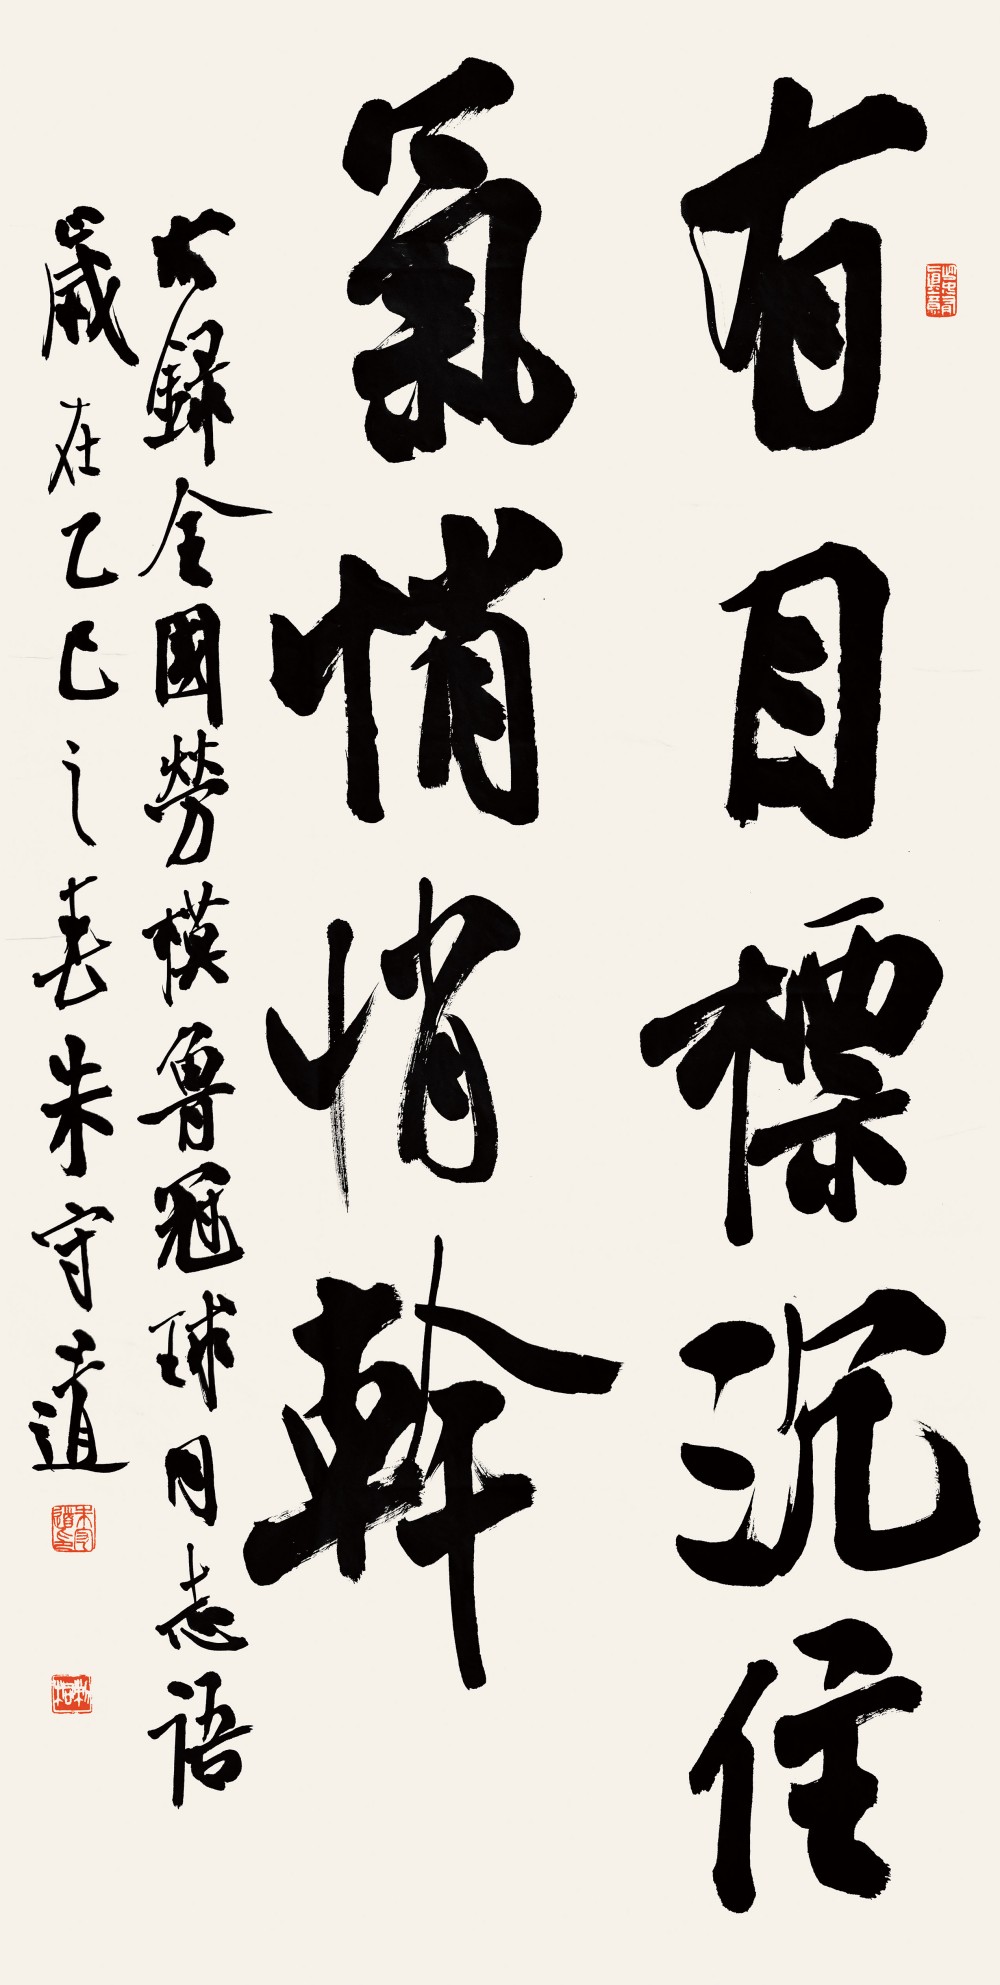 有目標沉住
氣悄悄幹
右録全國勞模魯冠球同志語
歲在乙巳之春朱守道